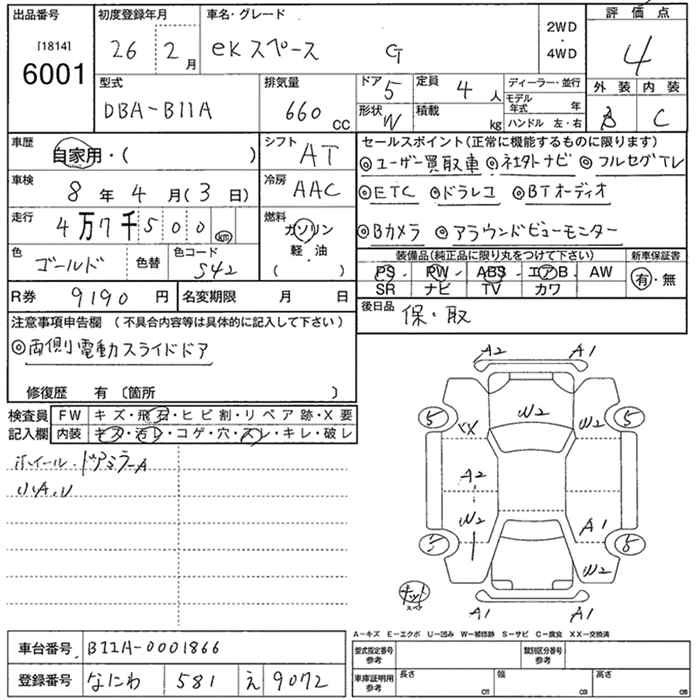 出品番号 初度登録年月 車名・グレード 評価点
[1814] 6001 26年 2月 ekスペース G 2WD・4WD 4
型式 DBA-B11A
排気量 660 CC
ドア 5 定員 4人 ディーラー・並行
形状 W 積載 kg モデル年式 年
ハンドル 左・右
外装 内装
B C
車歴 自家用・( )
シフト AT
車検 8年 4月(3日)
冷房 AAC
走行 4万7千500 km
燃料 ガソリン 軽・油 ( )
色 ゴールド 色替 色コード S42
R券 9190円 名変期限 月 日
セールスポイント(正常に機能するものに限ります)
◎ユーザー買取車 ◎ネエタトナビ ◎フルセグTV
◎ETC ◎ドラレコ ◎BTオーディオ
◎Bカメラ ◎アラウンドビューモニター
装備品(純正品に限り丸をつけて下さい) 新車保証書
PS PW ABS エアB AW 有・無
SR ナビ TV カワ
後日品 保・取
注意事項申告欄 (不具合内容等は具体的に記入して下さい)
◎両側電動スライドドア
修復歴 有〔箇所 〕
検査員記入欄 FW キズ・飛石・ヒビ割・リペア跡・X要
内装 キズ・汚レ・コゲ・穴・スレ・キレ・破レ
ホイール・ドアミラーA
小A,U
A2 A1
5 W2 5
XX W2
A2
W2 A1
5 5
W2
A1 A1
A-キズ E-エクボ U-凹み W-補修跡 S-サビ C-腐食 XX-交換済
車台番号 B11A-0001866
登録番号 なにわ 581 え 9072
型式指定番号 参考 類別区分番号 参考
車庫証明用 参考 長さ cm 幅 cm 高さ cm